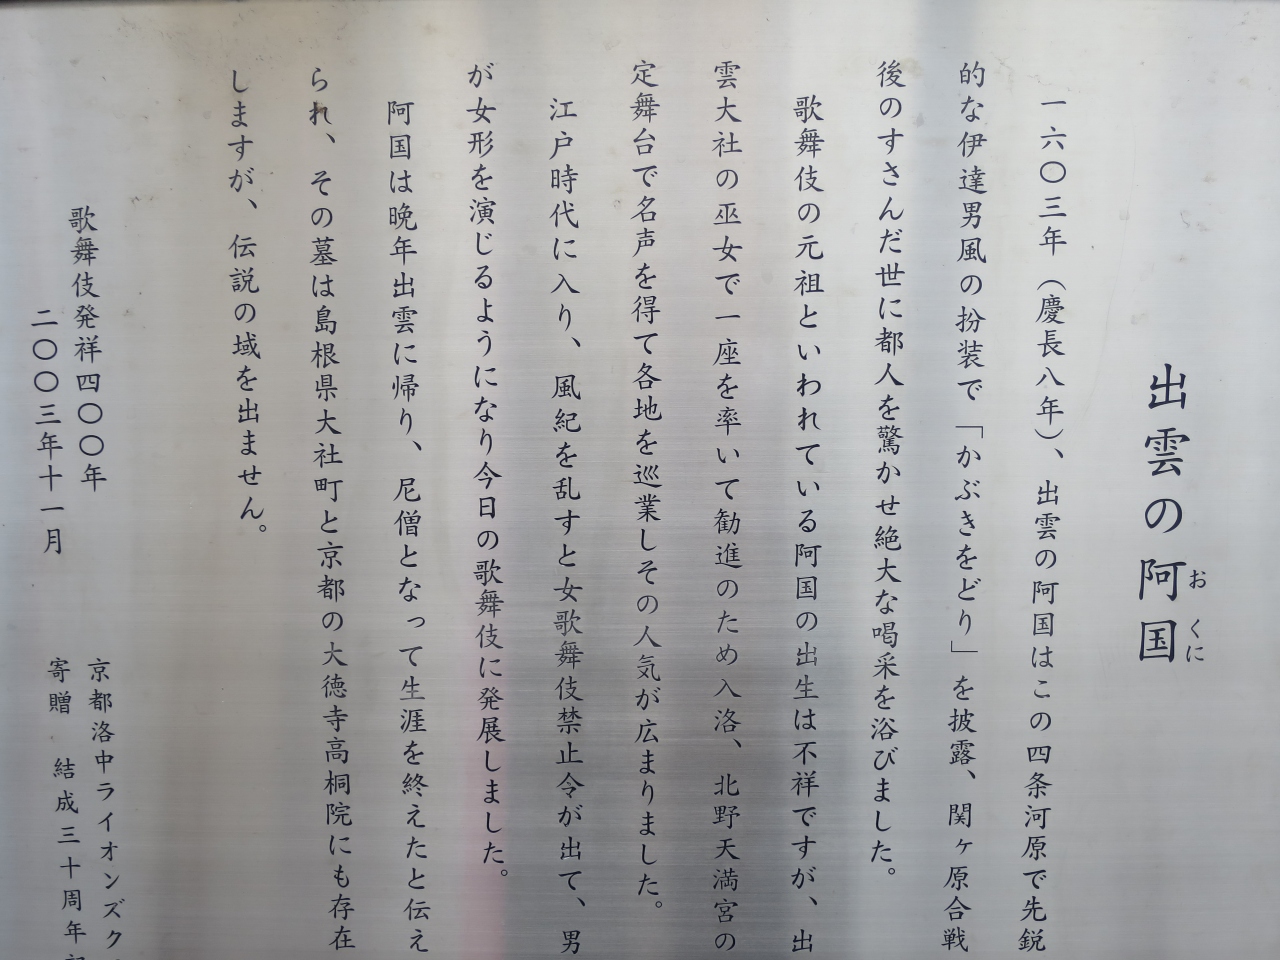 出雲の阿国
おくに
一六〇三年（慶長八年）、出雲の阿国はこの四条河原で先鋭
的な伊達男風の扮装で「かぶきをどり」を披露、関ヶ原合戦
後のすさんだ世に都人を驚かせ絶大な喝采を浴びました。
歌舞伎の元祖といわれている阿国の出生は不祥ですが、出
雲大社の巫女で一座を率いて勧進のため入洛、北野天満宮の
定舞台で名声を得て各地を巡業しその人気が広まりました。
江戸時代に入り、風紀を乱すと女歌舞伎禁止令が出て、男
が女形を演じるようになり今日の歌舞伎に発展しました。
阿国は晩年出雲に帰り、尼僧となって生涯を終えたと伝え
られ、その墓は島根県大社町と京都の大徳寺高桐院にも存在
しますが、伝説の域を出ません。
歌舞伎発祥四〇〇年
二〇〇三年十一月
京都洛中ライオンズク
寄贈 結成三十周年